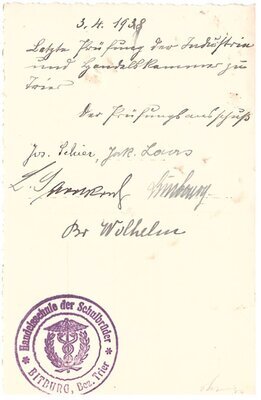 3.4.1938
Letzte Prüfung der Industrie
und Handelskammer zu
Trier
Der Prüfungsausschuß
Jos. Schier, Jak. Laars
L.
Br Wilhelm
Handelsschule der Schulbrüder
BITBURG, Bez. Trier